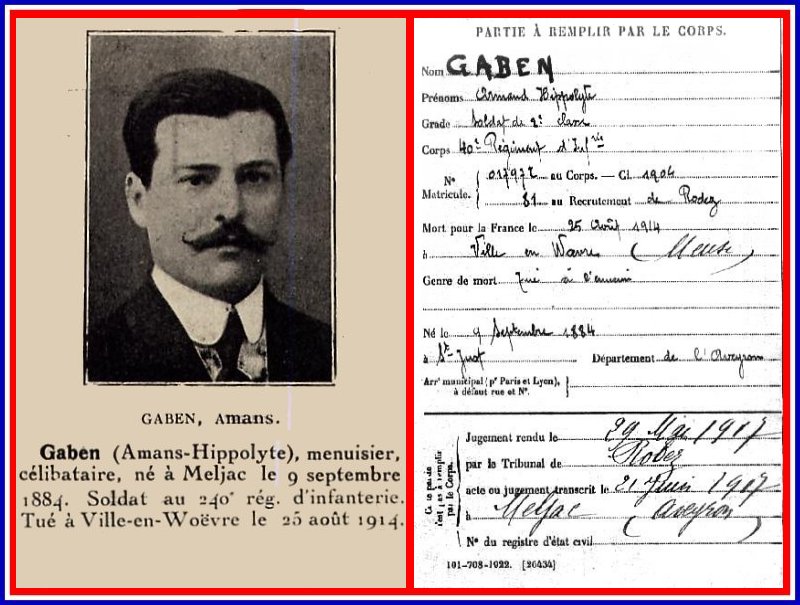 GABEN, Amans.
Gaben (Amans-Hippolyte), menuisier,
célibataire, né à Meljac le 9 septembre
1884. Soldat au 240e rég. d'infanterie.
Tué à Ville-en-Woëvre le 25 août 1914.
PARTIE À REMPLIR PAR LE CORPS.
Nom GABEN
Prénoms Armand Hippolyte
Grade Soldat de 2e classe
Corps 40e Régiment d'Infrie
N° Matricule. 017972 au Corps. — Cl. 1904
81 au Recrutement de Rodez
Mort pour la France le 25 Août 1914
à Ville en Wavre (Meuse)
Genre de mort Tué à l'ennemi
Né le 9 Septembre 1884
à St Just Département de l'Aveyron
Arrt municipal (pr Paris et Lyon),
à défaut rue et N°.
Ce cadre n'est pas à remplir par le Corps.
Jugement rendu le 29 Mai 1917
par le Tribunal de Rodez
acte ou jugement transcrit le 21 Juin 1917
à Meljac (Aveyron)
N° du registre d'état civil
101-708-1922. [26434]